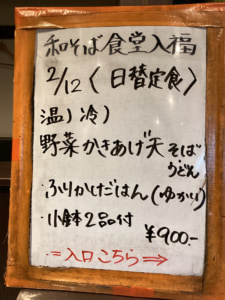 和そば食堂入福
2/12〈日替定食〉
温)冷)
野菜かきあげ天そば
うどん
・ふりかけごはん(ゆかり)
・小鉢2品付
¥900.-
=入口こちら⇒